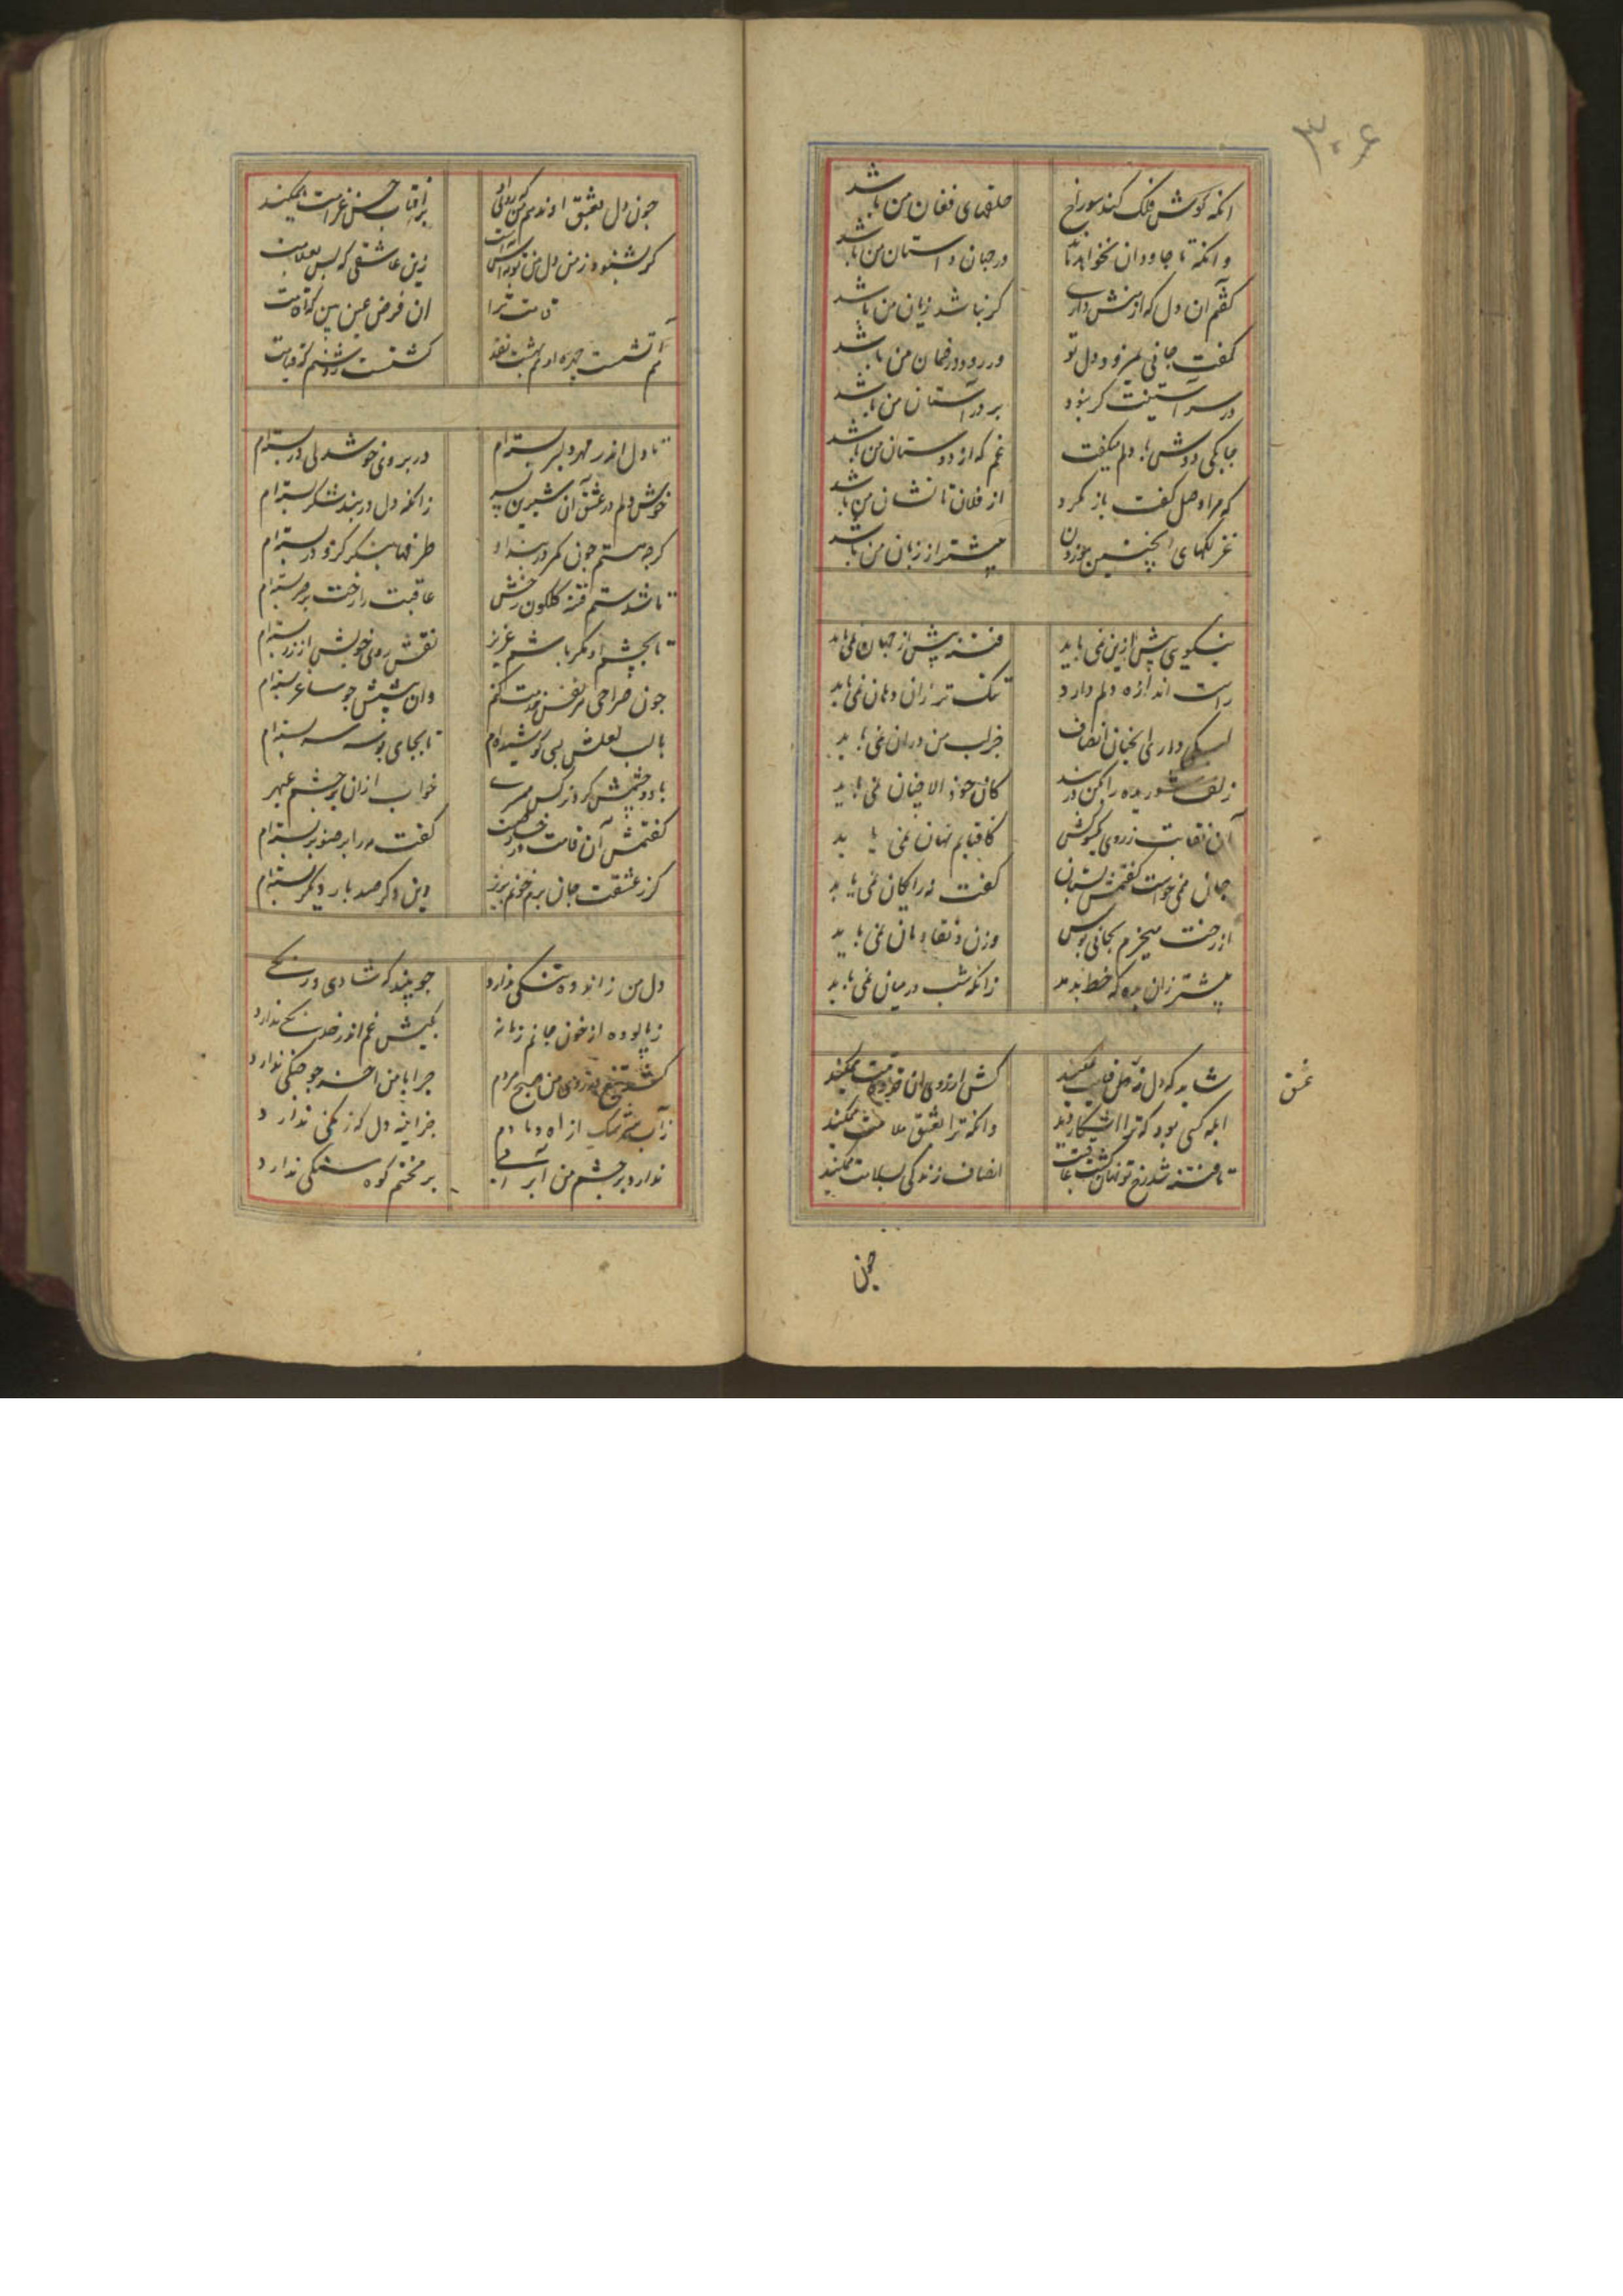 ۳۰۶
انکه کوش فلک کند سوراخ حلقهای فغان من باشد
وانکه تا جاودان نخواهد ماند در جهان داستان من باشد
کفتم ان دل که از منش داری کر نباشد زیان من باشد
کفت جانی بیرزد دل تو ور رود در ضمان من باشد
در سر آستینت کر نبود بر در آستان من باشد
جابکی دوش با دلم میکفت غم که از دوستان من باشد
که مراد وصل کفت باز مکرد از فلان تا نشان من باشد
غزلکهای اینچنین موزون بیشتر از زبان من باشد
نیکویی بیش ازین نمی باید فتنه بیش از جهان نمی باید
راست اندازه دلم دارد تنک تر زان دهان نمی باید
لیکی داری انصاف خراب من دران نمی باید
زلف شوریده را مکن در بند کان جو الا جنان نمی باید
آن نقابت ز روی کیسو کش کافتابم نهان نمی باید
جان می خواست کفتمش بستان کفت نه رایکان نمی باید
از رخت میخرم بجانی بوس وزن و نقاد مان نمی باید
بیشتر زان بده که خط بدمد زانکه شب در میان نمی باید
شاید که دل نمیکند کش ارزوی ان قد و قامت نمیکند
ابله کسی بود که ترا اشکار دید وانکه ترا بعشق ملامت نمیکند
تا فتنه شد رخ تو نهان کشت عافیت انصاف زندکی بسلامت نمیکند
عشق
جون
جون دل بعشق او ندهم کز روی او بر افتاب حسن غرامت نمیکند
کر شنود ز من دل من زین عاشقی که بس بعلامت
قامت ترا ان فرض عین بین که اقامت
آتشست جهره او کشت
تا دل اندر مهر دلبر بسته ام در بروی خوشدلی در بسته ام
خوش دلم در عشق آن شیرین بسر زانکه دل در بند شکر بسته ام
کرجه هستم جون کمر در بند او طرفها بنکر کزو در بسته ام
تا شدستم فتنه کلکون رخش عاقبت را رخت بر خر بسته ام
تا بجشم او مکر باشم عزیز نقش روی خویش از زر بسته ام
جون صراحی هر نفس خدمت کنم وان بیشش جو ساغر بسته ام
با لب لعلش بسی کوشیده ام تا بجای بوسه بسته ام
با دو جشمش کرد نرکس همسری خواب ازان بر جشم عبهر
کفتمش آن قامت خوش در خورست کفت مه را بر صنوبر بسته ام
کز عشقت جان برم خونم بریز وین دکر صد بار دیکر بسته ام
دل من ز اندوه تنکی ندارد جو بیند که شادی درنکی
ز بالوده از خون جانم زمانه بکیش غم اندر خدنکی ندارد
کشد تیغ بر روی من صبح هر دم جرا با من اخر جو جنکی ندارد
ز آب سرشک از اه دمادم جز اینه دل که زنکی ندارد
ندارد بر جشم من ابر آبی بر بختم کوه سنکی ندارد